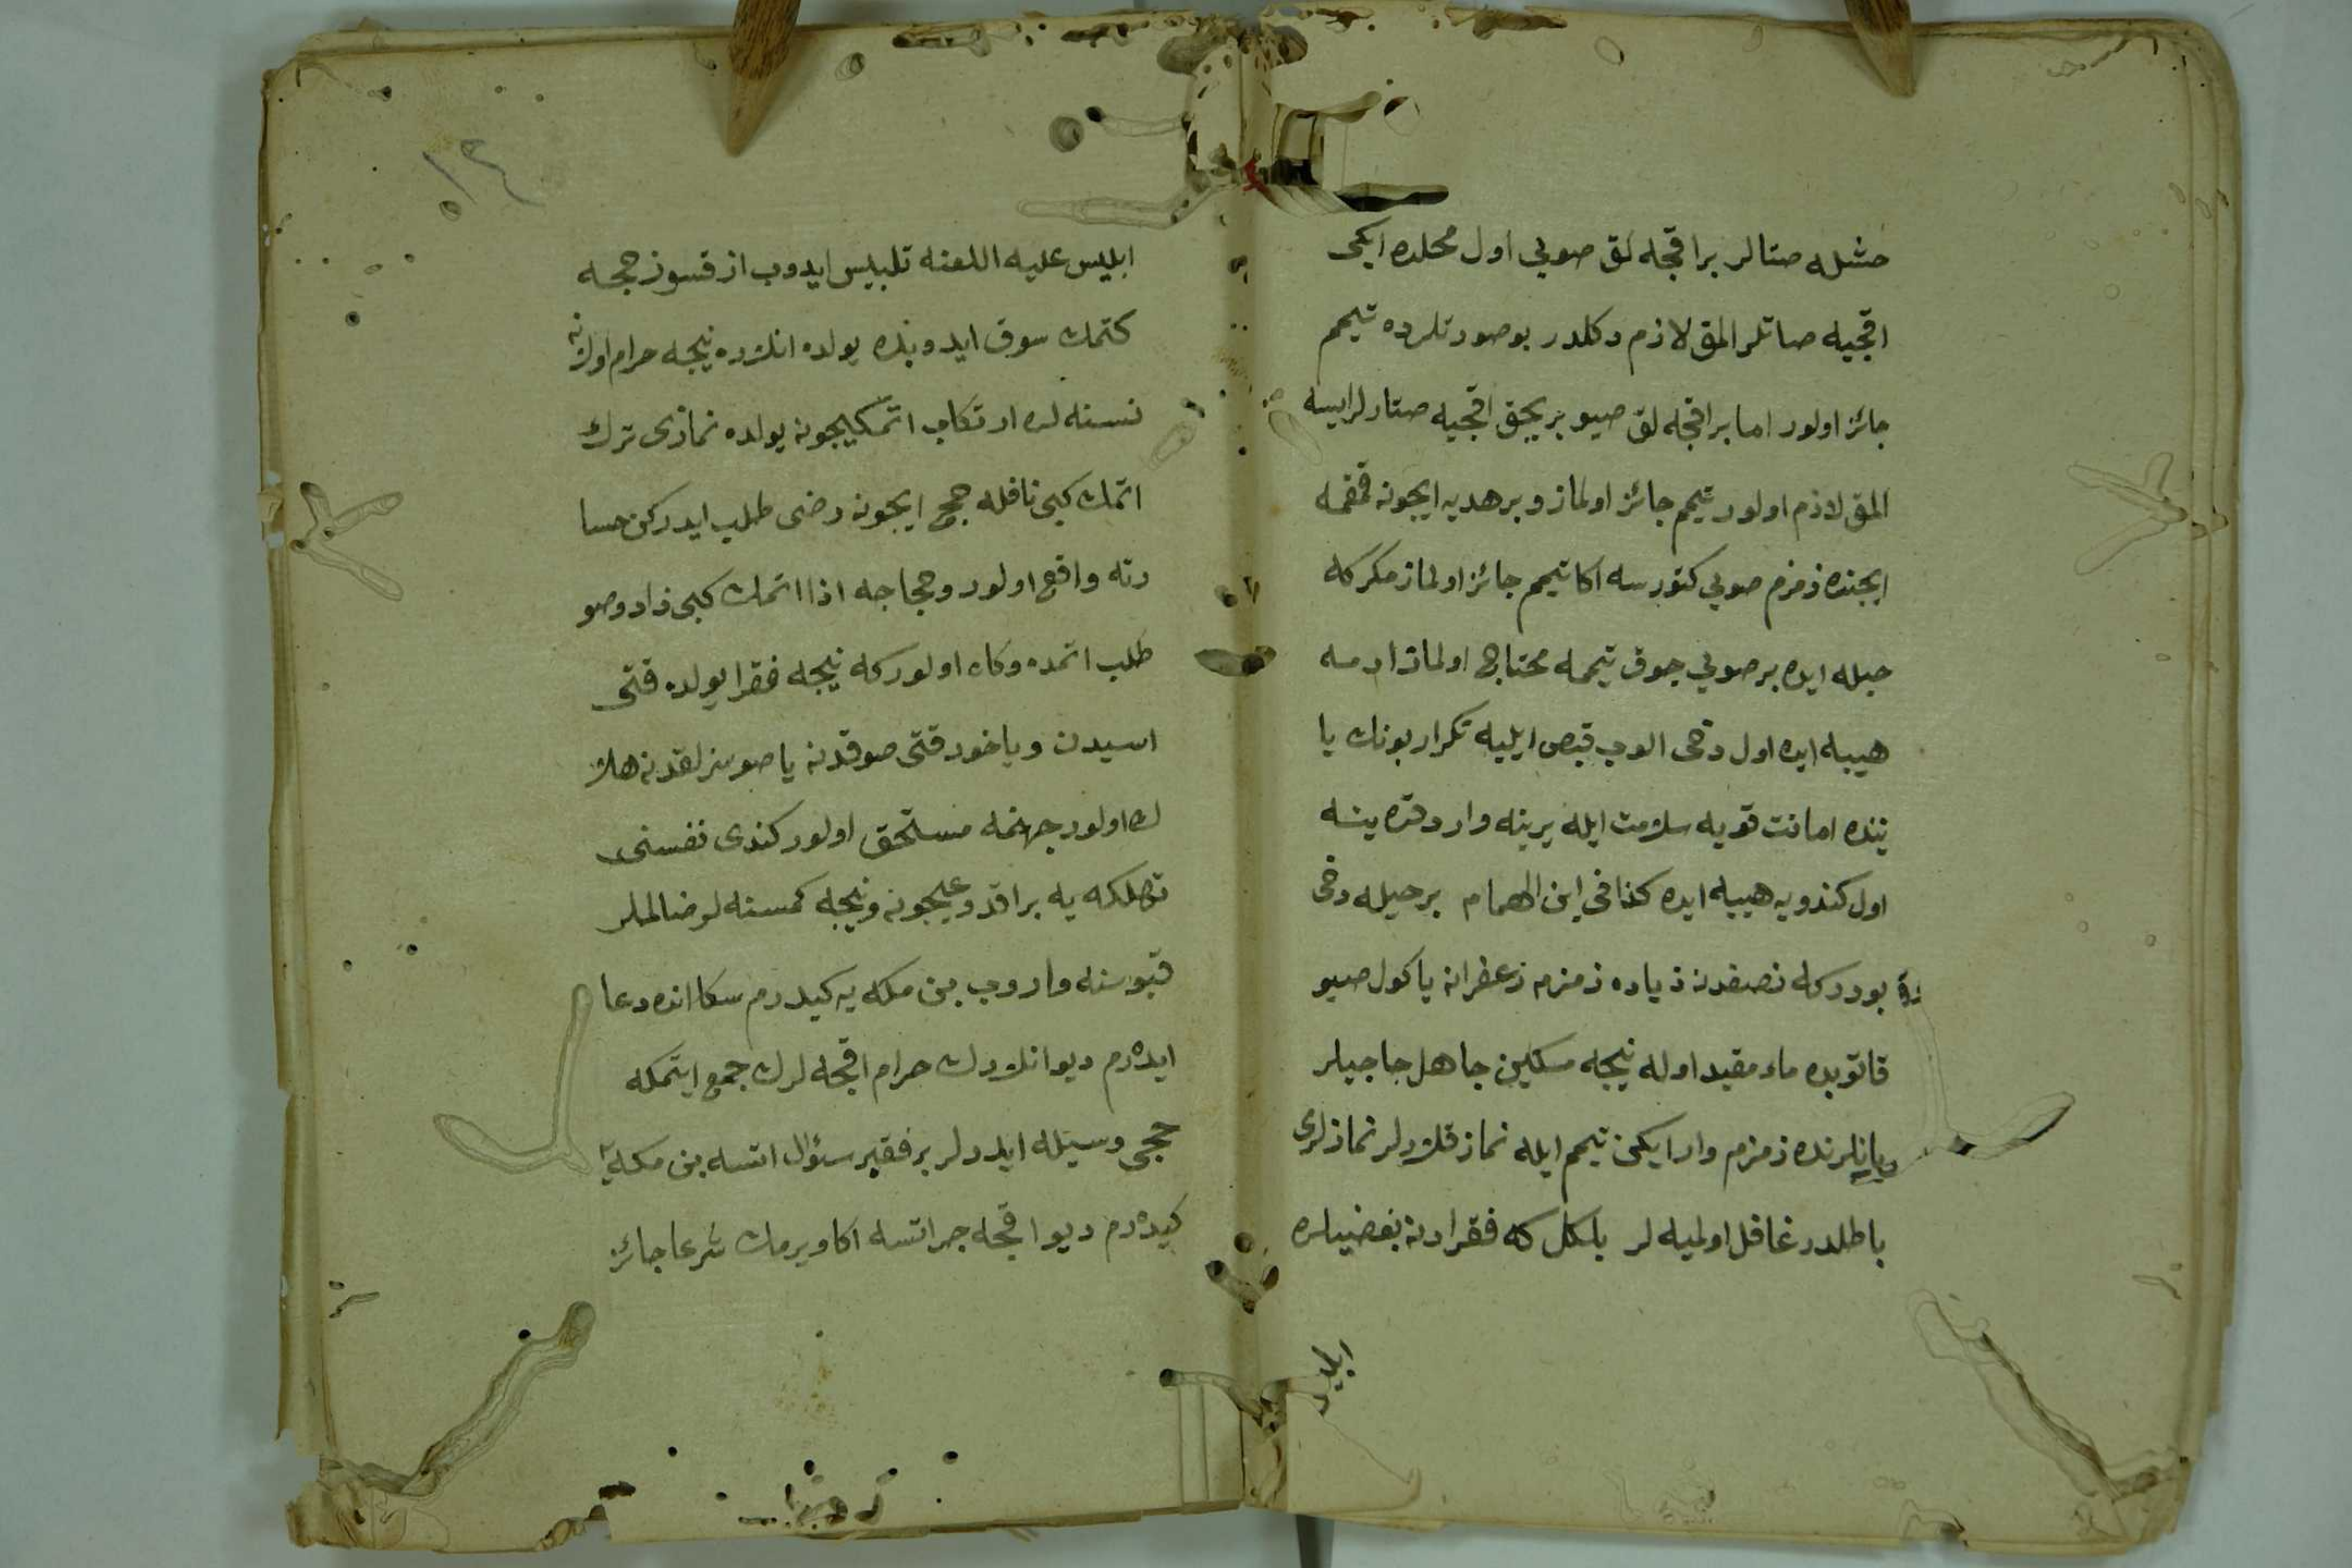 مثله صتالر براقچه لق صویی اول محلده ایکی
اقچیه صاتلر المق لازم دکلدر بو صورتلرده تیمم
جائز اولور اما براقچه لق صیو بربچق اقچیه صتارلرایسه
المق لازم اولور تیمم جائز اولماز و بر هدیه ایچونه قمقمه
ایچنده زمزم صویی کتورسه اکا تیمم جائز اولماز مکرکه
حیله ایده بر صویی چوق تیممه محتاج اولماز ادمه
هیبه ایده اول دخی الوب قبض ایلیه تکرار بونك یا
ننده امانت قویه سلامت ایله یرینه واردقده ینه
اول کندویه هیبه ایده کذا فی ابن الهمام بر حیله دخی
بودرکه نصفدنه زیاده زمزم زعفرانه یا کول صیو
قاتوبده ماء مقید اوله نیجه مسکین جاهل حاجیلر
یانلرنده زمزم وار ایکن تیمم ایله نماز قلارلر نمازلری
باطلدر غافل اولمیه لر بلکل که فقرادنه بعضیلره
ابلیس
١٤
ابلیس علیه اللعنه تلبیس ایدوب ازقسوز حجه
کتمك سوق ایدوبده یولده انلرده نیجه حرام اولانه
نسنه لره ارتکاب اتمکیچونه یولده نمازی ترك
اتمك کبی نافله حج ایچونه رضی طلب ایدرکن حسا
رته واقع اولور و حجاجه اذا اتمك کبی زاد و صو
طلب اتمده وکاه اولورکه نیجه فقرا یولده قتی
اسیدن و یاخود قتی صوقدنه یا صوسزلقدنه هلا
ك اولور جهنمه مستحق اولور کندی نفسنی
تهلکه یه براقدوغیچونه و نیجه کمسنه لر ضالملر
قپوسنه واروب بن مکه یه کیدرم سکا انده دعا
ایدرم دیو انلردك حرام اقچه لرك جمع ایتمکه
حجی وسیله ایدرلر بر فقیر سئوال اتسه بن مکه یه
کیدرم دیو اقچه جر اتسه اکا ویرمك شرعا جائز